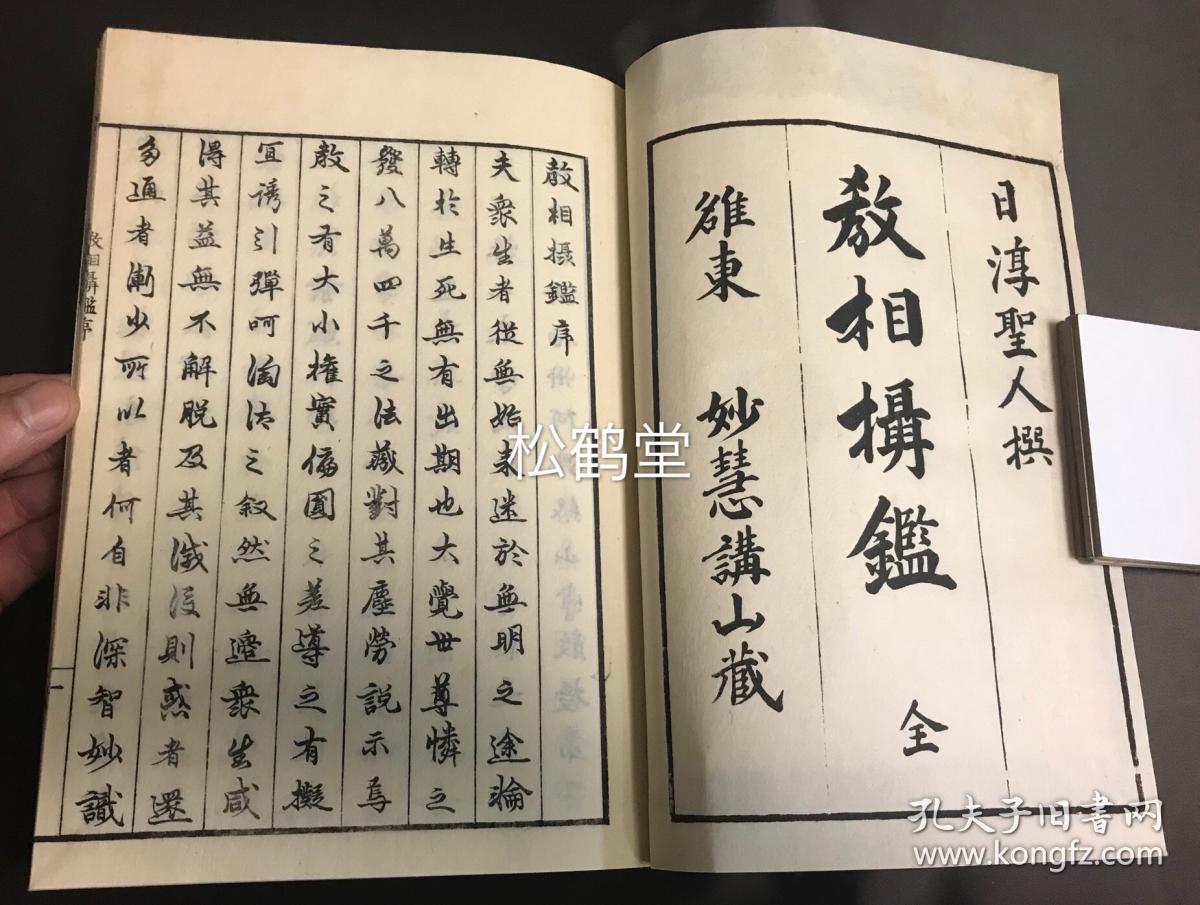 日淳聖人撰
教相攝鑑 全
雒東 妙慧講山藏
教相摄鑑序
夫衆生者從無始来迷於無明之途淪
轉於生死無有出期也大覺世尊憐之
發八萬四千之法藏對其塵勞説示焉
教之有大小權實偏圓之差導之有擬
宜誘引彈呵淘汰之叙然無邊衆生咸
得其益無不解脱及其滅後則惑者還
多通者漸少所以者何自非深智妙識
教相攝鑑序
一
松鹤堂
孔夫子旧书网
www.kongfz.com